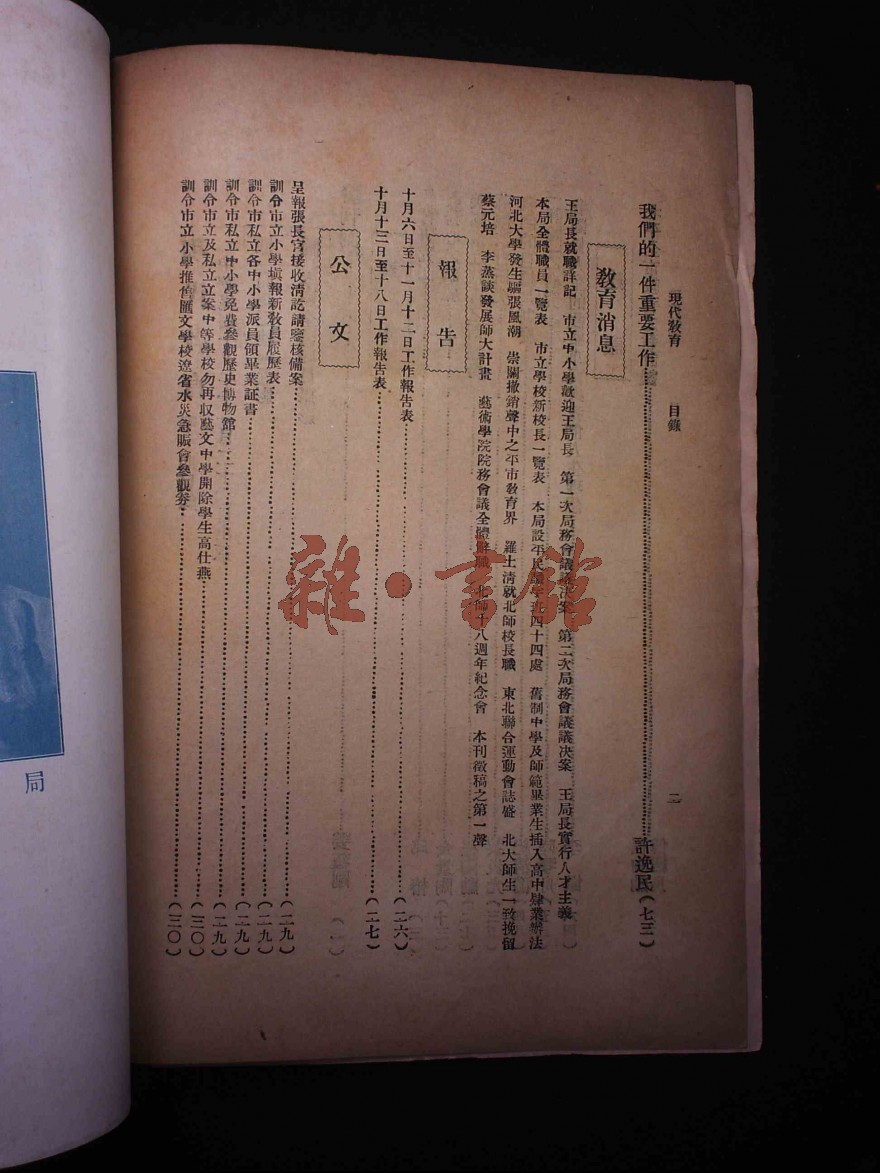 現代教育 目錄 二
我們的一件重要工作…………許逸民(七三)
教育消息
王局長就職詳記 市立中小學歡迎王局長 第一次局務會議議決案 第二次局務會議議決案 王局長實行人才主義
本局全體職員一覽表 市立學校新校長一覽表 本局設平民讀學班四十四處 舊制中學及師範畢業生插入高中肄業辦法
河北大學發生驅張風潮 崇關撤銷聲中之平市教育界 羅士清就北師校長職 東北聯合運動會誌盛 北大師生一致挽留
蔡元培 李蒸談發展師大計畫 藝術學院院務會議全體辭職 北師十八週年紀念會 本刊徵稿之第一聲
報告
十月六日至十一月十二日工作報告表…………(二六)
十月十三日至十八日工作報告表…………(二七)
公文
呈報張長官接收清訖請鑒核備案…………(二九)
訓令市立小學塡報新教員履歷表…………(二九)
訓令市私立各中小學派員領畢業証書…………(二九)
訓令市私立中小學免費參觀歷史博物館…………(二九)
訓令市立及私立立案中等學校勿再收藝文中學開除學生高仕燕…………(三〇)
訓令市立小學推售匯文學校遼省水災急賑會參觀券…………(三〇)
局
雜·書館